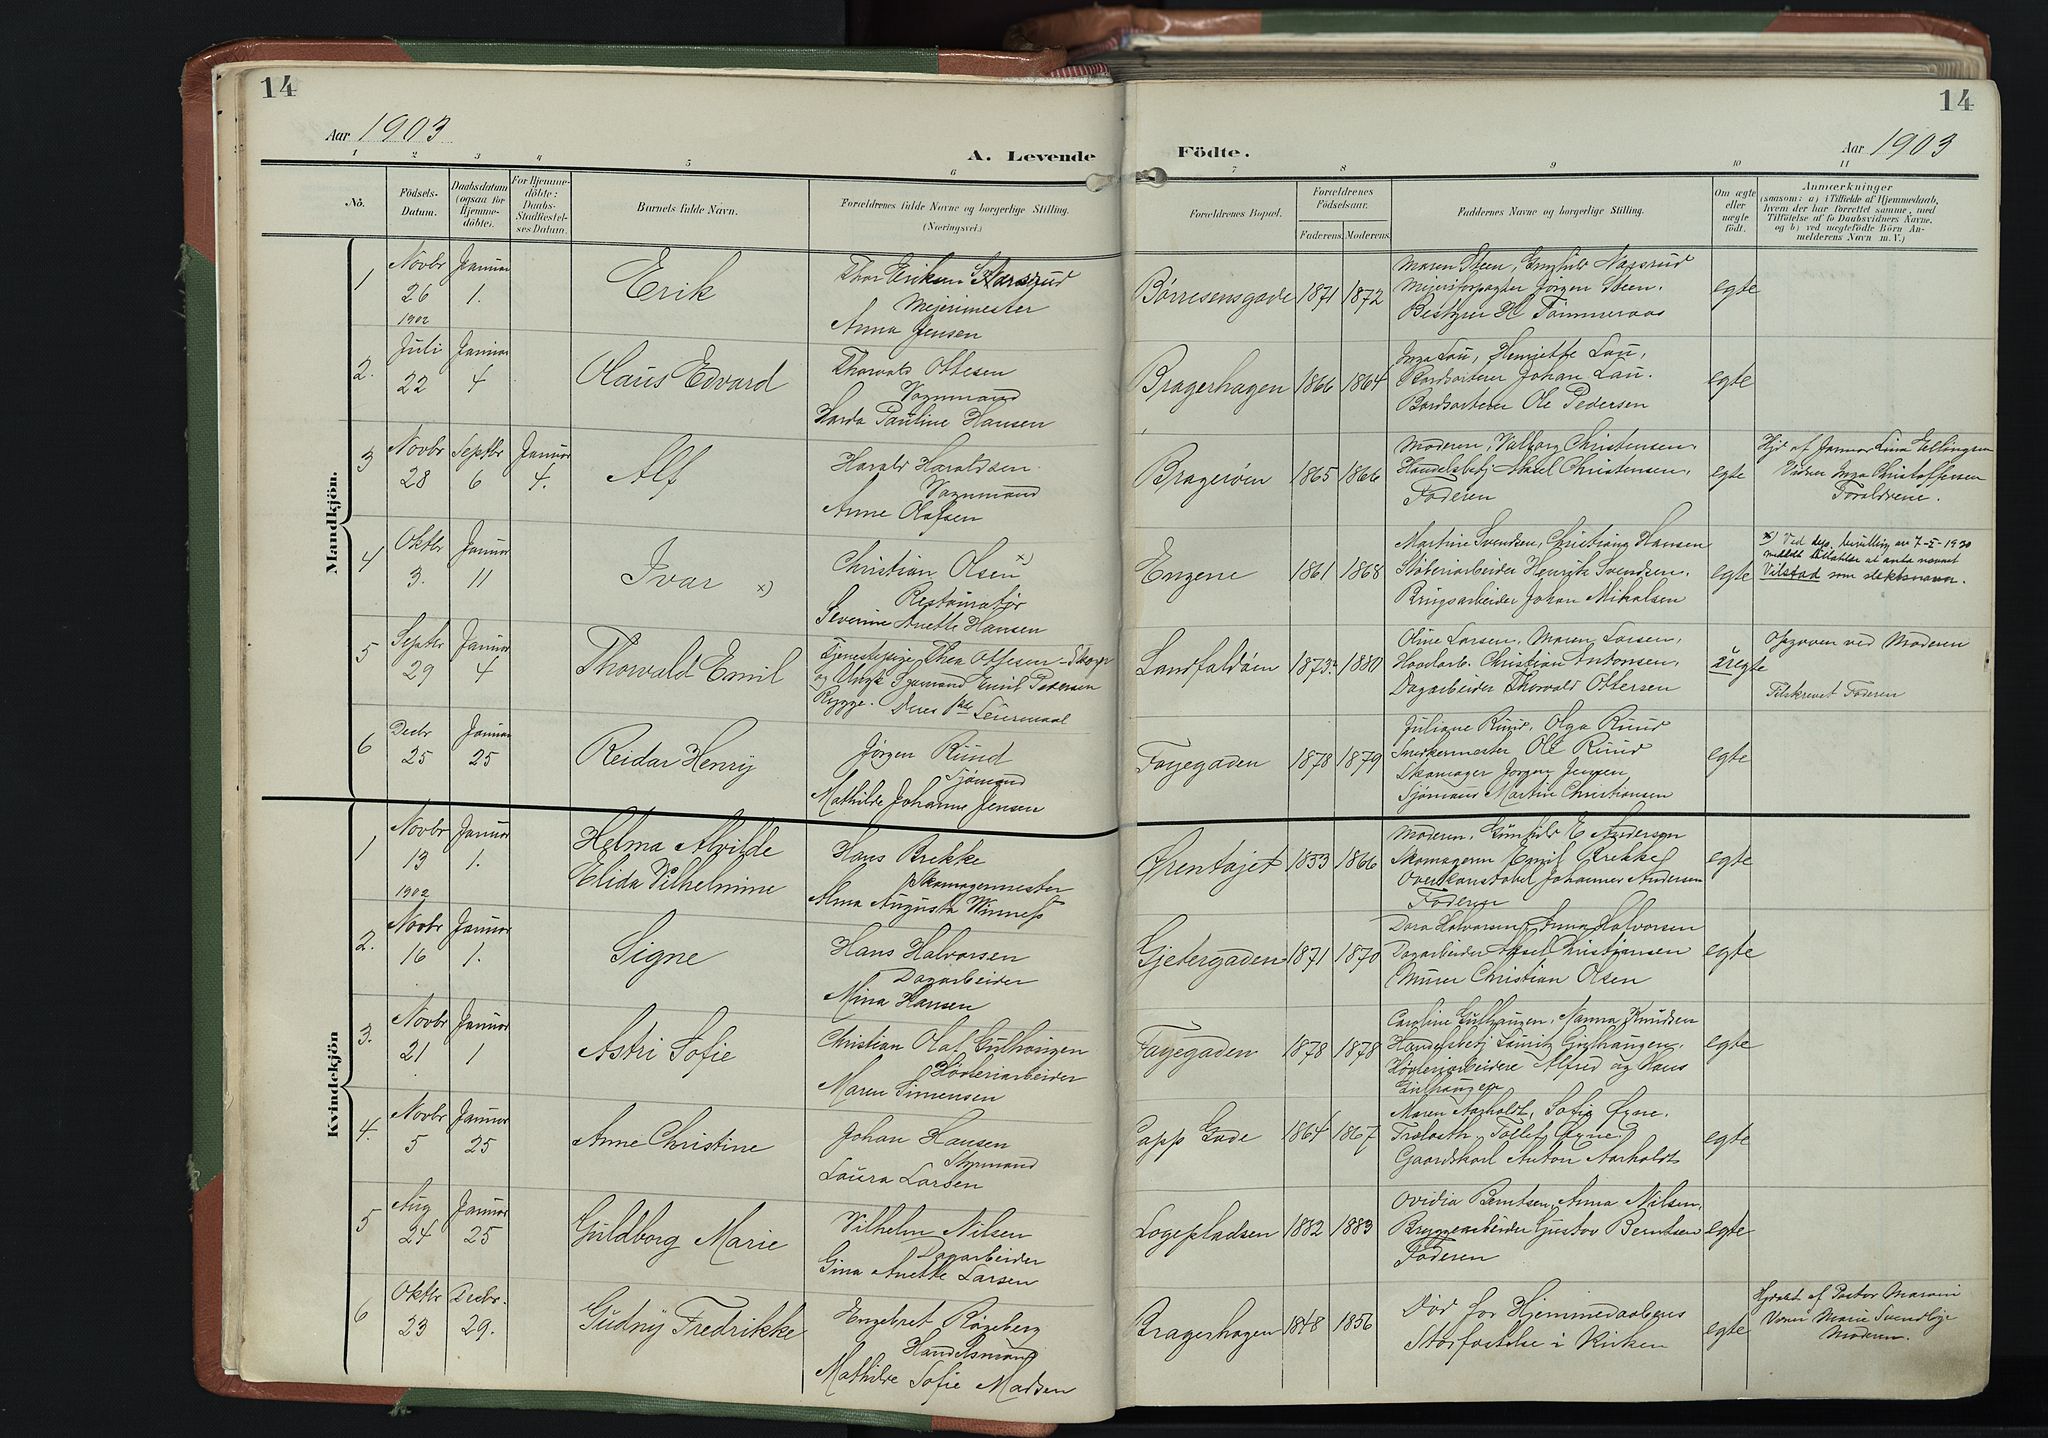 14
14
Aar 1903
A. Levende
Födte.
Aar 1903
1 2 3 4 5 6 7 8 9 10 11
Nö.
Födsels-
Datum.
Daabsdatum
(ogsaa for
Hjemme-
döbte).
For Hjemme-
döbte:
Daabs-
Stadfæstel-
ses Datum.
Barnets fulde Navn.
Forældrenes fulde Navne og borgerlige Stilling.
(Næringsvei.)
Forældrenes Bopæl.
Forældrenes
Födselsaar.
Faderens. Moderens.
Faddernes Navne og borgerlige Stilling.
Om ægte
eller
uægte
födt.
Anmærkninger
(saasom: a) i Tilfælde af Hjemmedaab,
hvem der har forrettet samme, med
Tilföielse af to Daabsvidners Navne,
og b) ved uægtefödte Börn An-
melderens Navn m. V.)
Mandkjön.
1
Novbr
26
1902
Januar
1.
Erik
Thor Eriksen
Mejerimester
Anna Jensen
Børresensgade
1871
1872
Maren Steen,
Mejeriforpagter Jörgen Steen.
Bestyrer H Tømmeraas
egte
2.
Juli
22
Januar
4
Olaus Edvard
Thorvald Ottesen
Vognmand
Pauline Hansen
Bragerhagen
1866
1864
Inga Lau, Henriette Lau,
Bordsorterer Johan Lau.
Bordsorterer Ole Pedersen
egte
3
Novbr
28
Septbr
6
Januar
4.
Alf
Harald Haraldsen.
Vognmand
Anne Olafsen
Bragerøen
1865
1866
Moderen, Valborg Christensen.
Handelsbetj Aksel Christensen,
Faderen
egte
Hjd af Jormor Lina Ellingsen
Vidner Inga Christoffersen
Forældrene.
4
Oktbr
3.
Januar
11
Ivar x)
Christian Olsen x)
Restauratør
Severine Anette Hansen
Engene
1861
1868
Martine Svendsen, Christiane Hansen
Støberiarbeider Henrik Svendsen.
Brugsarbeider Johan Mikalsen
egte
x) Ved dep. bevilling av 7-X-1920
meddelt tillatelse at anta navnet
Vilstad som slektsnavn.
5
Septbr
29
Januar
4
Thorvald Emil
Tjenestepige Thea Ottesen
og Ungk Sjømand Emil Pedersen
Rygge. Deres Leiermaal
Landfaldøen
1873
1880
Oline Larsen, Maren Larsen,
Havlarb. Christian Antonsen,
Dagarbeider Thorvald Ottersen
uegte
Opgaven ved Moderen
Tilskrevet Faderen
6
Decbr
25
Januar
25
Reidar Henry
Jørgen Ruud
Sjømand
Mathilde Johanne Jensen
Fayegaden
1878
1879
Juliane Ruud, Olga Ruud
Snedkermester Ole Ruud
Skomager Jörgen Jensen
Sjömand Martin Christiansen
egte
Kvindekjön
1
Novbr
13
1902
Januar
1.
Helma Alvilde
Elida Vilhelmine
Hans Brekke
Skomagermester
Alma Augusta
Ørentajet
1833
1866
Moderen, Gunhild E Andersen
Skomagerm Emil Brekke
Overkonstabel Johannes Andersen
Faderen
egte
2.
Novbr
16
Januar
1.
Signe
Hans Halvorsen
Dagarbeider
Mina Hansen
Gjetergaden
1871
1870
Dora Halvorsen, Anna Halvorsen
Dagarbeider Aksel Christiansen
Murer Christian Olsen
egte
3.
Novbr
21
Januar
1
Astri Sofie
Christian Olaf Gulhaugen
Høvleriarbeider
Maren Simensen
Fayegaden
1878
1878
Caroline Gulhaugen, Nanna Knudsen
Handelsbetj Lauritz Gulhaugen.
Høvleriarbeidere Alfred og Hans
Gulhaugen
egte
4.
Novbr
5
Januar
25
Anne Christine
Johan Hansen
Styrmand
Laura Larsen
Capp Gade
1864
1867
Maren Aarholdt, Sofie Øyne.
Trælasth. Tollef Øyne
Gaardskarl Anton Aarholdt
egte
5
Aug
24
Januar
25
Guldborg Marie
Vilhelm Nilsen
Dagarbeider
Gina Anette Larsen
Logepladsen
1882
1883
Ovidia Berntsen, Anna Nilsen,
Bryggearbeider Gustav Berntsen
Faderen
egte
6
Oktbr
23
Decbr.
29.
Gudny Fredrikke
Engebret Røgeberg
Handelsmand
Mathilde Sofie Madsen
Bragerhagen
1848
1856
Död før Hjemmedaabens
Stadfæstelse i Kirken
egte
Hjdøbt af Pastor
Vidner Marie
Moderen.